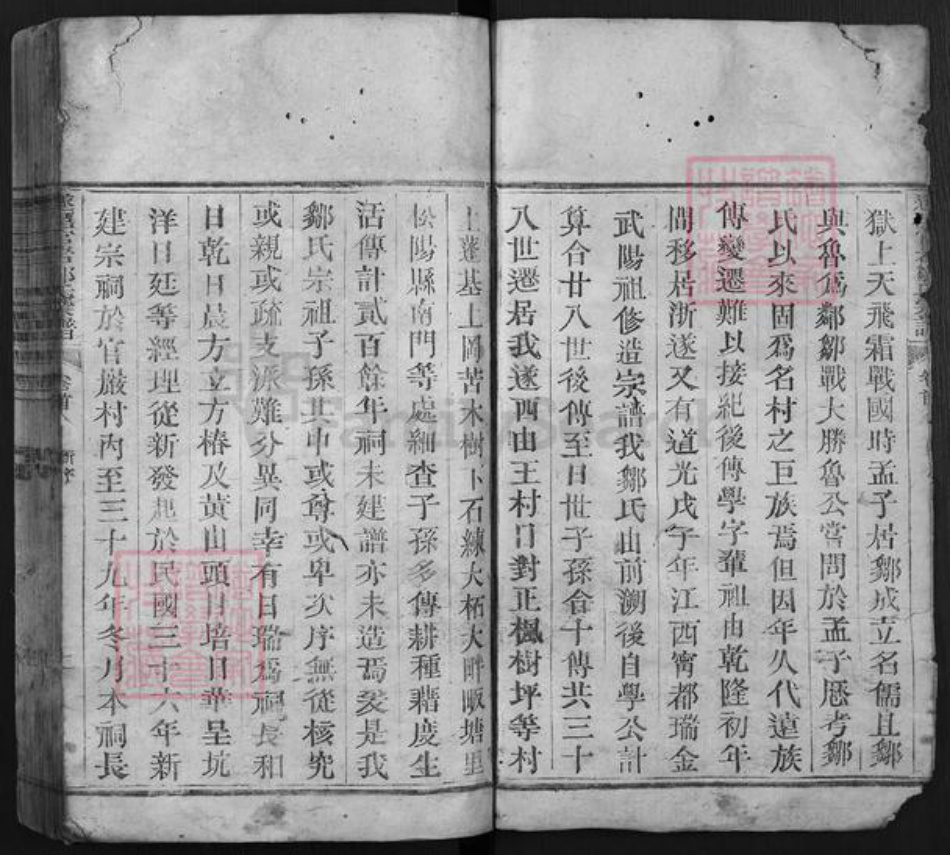 獄上天飛霜戰國時孟子居鄒成立名儒且鄒
與魯爲鄰鄒戰大勝魯公嘗問於孟子歷考鄒
氏以來固爲名村之巨族焉但因年久代遠族
傳變遷難以接紀後傳學字輩祖由乾隆初年
間移居浙遂又有道光戊子年江西甯都瑞金
武陽祖修造宗譜我鄒氏由前溯後自學公計
算合廿八世後傳至日世子孫會十傳共三十
八世遷居我遂西由王村口對正楓樹坪等村
上蓬基上岡苦木樹下石練大柘大畔畈塘里
松陽縣南門等處細查子孫多傳耕種藉度生
活傳計貳百餘年祠未建譜亦未造焉爰是我
鄒氏宗祖子孫其中或尊或卑次序無從核究
或親或疏支派難分異同幸有日瑞爲祠長和
日乾日晨方立方椿及黄山頭日培日華呈坑
洋日廷等經理從新發起於民國三十六年新
建宗祠於官嚴村內至三十九年冬月本祠長